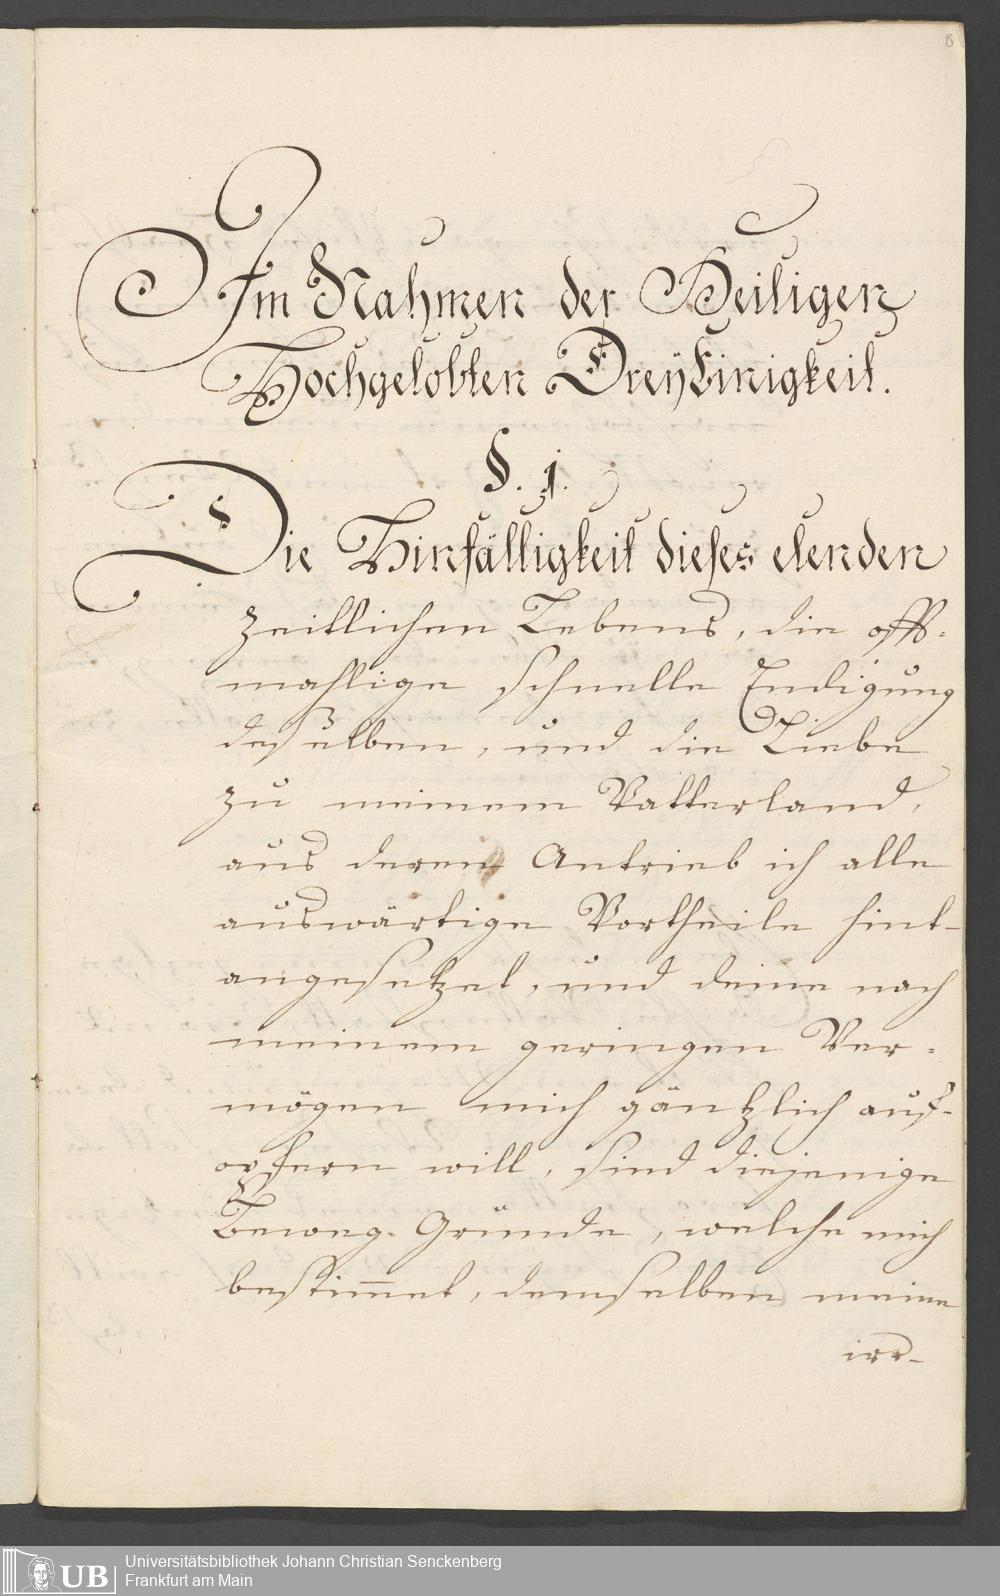 8
Im Nahmen der Heiligen
Hochgelobten DreyEinigkeit.
§. 1.
Die Hinfälligkeit dieses elenden
zeitlichen Lebens, die offt-
mahlige schnelle Endigung
desselben, und die Liebe
zu meinem Vatterland,
aus deren Antrieb ich alle
auswärtige Vortheile hint-
angesetzet, und deme nach
meinem geringen Ver-
mögen mich gäntzlich auf-
opfern will, sind diejenige
Beweg-Gründe, welche mich
bestim̅et, demselben meine
irr-
UB Universitätsbibliothek Johann Christian Senckenberg
Frankfurt am Main